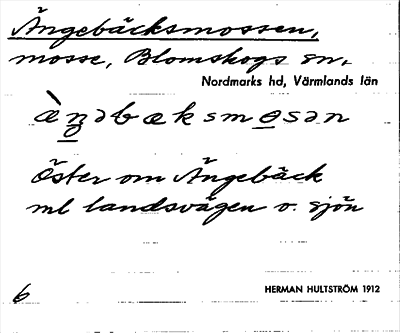 Ängebäcksmossen,
mosse, Blomskogs sn.
Nordmarks hd, Värmlands län
ä̀ŋəbæksmo̲sən
Öster om Ängebäck
ml landsvägen o. sjön
6
HERMAN HULTSTRÖM 1912